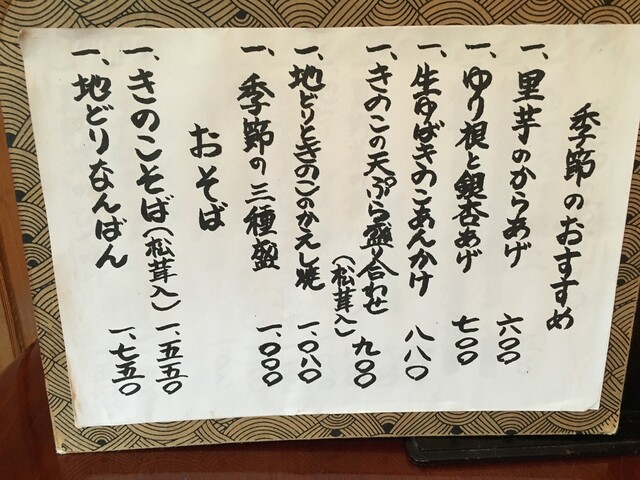 季節のおすすめ
一、里芋のからあげ 六〇〇
一、ゆり根と銀杏あげ 七〇〇
一、生ゆばきのこあんかけ 八八〇
一、きのこの天ぷら盛り合わせ(松茸入) 九〇〇
一、地どりときのこのかえし焼 一、〇八〇
一、季節の三種盛 一、〇〇〇
おそば
一、きのこそば(松茸入) 一、五五〇
一、地どりなんばん 一、七五〇